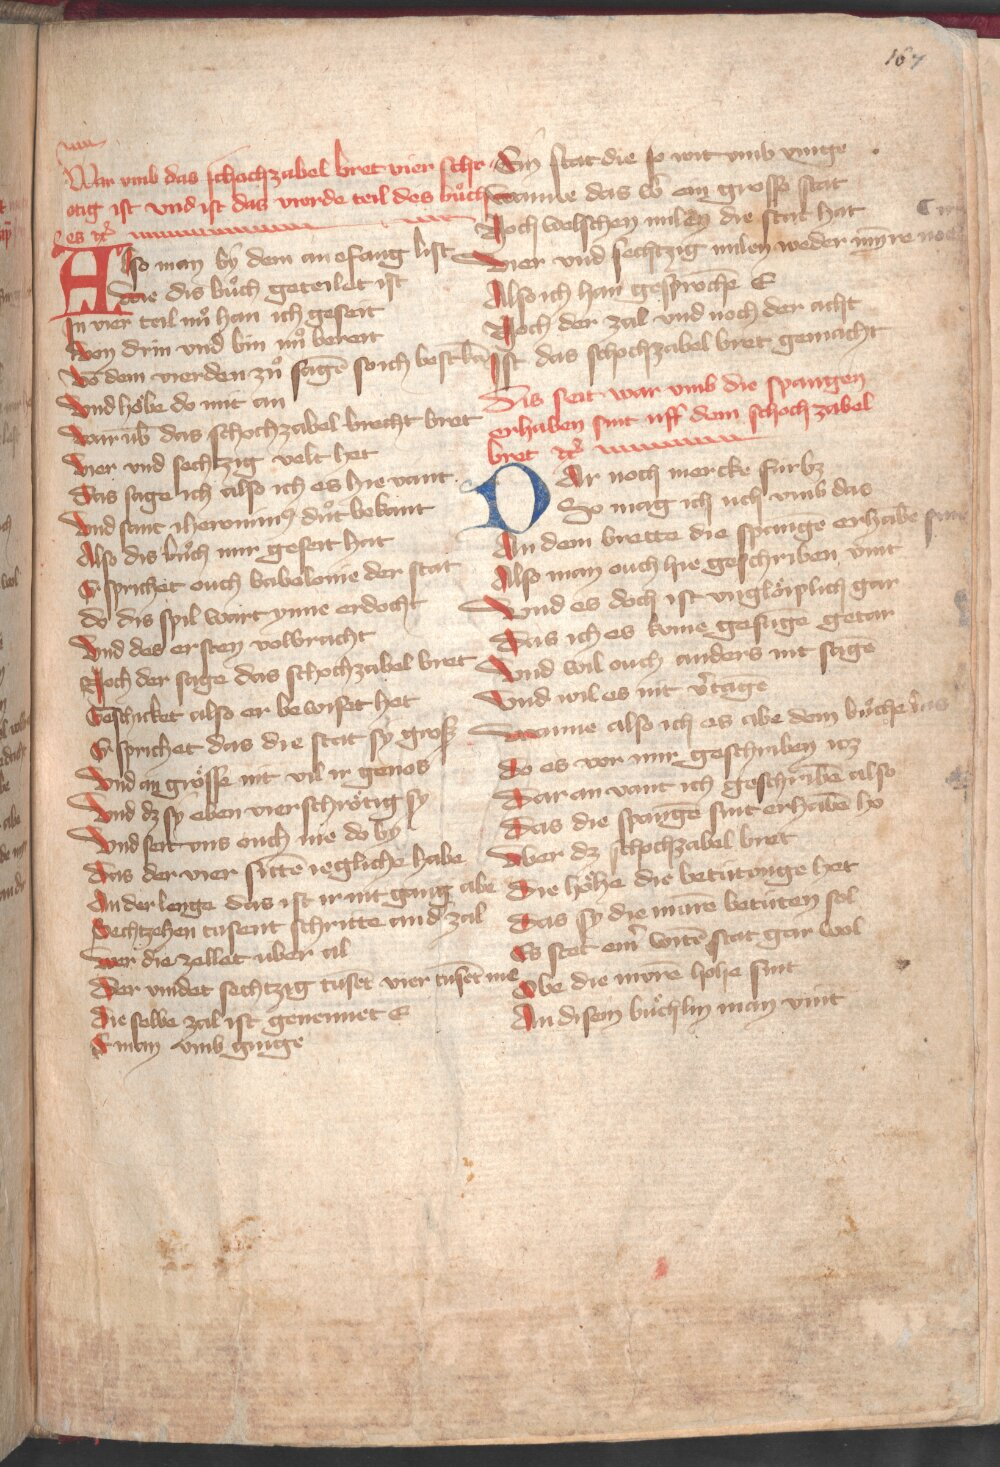 167
War vmb das schochzabel bret vier schr
otig ist vnd ist das vierde teil des bůch
es ꝛc
Also man by dem anefang list
Wie dis bůch geteildt ist
In vier teil nů han ich geseit
Von drin vnd bin nů bereit
Vō dem vierden zů sagē so ich best kā
Vnd hebe do mit an
War vb das schochzabel brecht bret
Vier vnd sechtzig velt het
Das sage ich also ich es hie vant
Vnd sant iheronimꝰ důt bekant
Also dis bůch mir geseit hat
Er sprichet ouch babelonie der stat
do dis spil wart ynne erdocht
Vnd des ersten volbracht
Noch der sage das schochzabel bret
Geschicket also er bewiset het
Er sprichet das die stat sy groß
Vnd an grösse nit vil ir genos
Vnd dz sy eben vierschrötig sy
Vnd seit vns ouch me do by
Das der vier sittē iegliche habe
An der lenge das ist ir nit gang abe
Sechtzehen tusent schritte an d' zal
Wer die zellet uber al
Der vindet sechtzig tuset vier tusēt me
Die selbe zal ist genennet E
E man vmb ginge
Ein stat die so wit vmb vinge
Wanne das wē ein grosse stat
Noch welschen milen die stat hat
Vier vnd sechtzig milen weder mynre noch
Also ich han gesprochē E
Noch der zal vnd noch der acht
Ist das schochzabel bret gemacht
Dis seit war vmb die spangen
erhaben sint uff dem schochzabel
bret ꝛc
Dar noch mercke fúrbz
So mag ich uch vmb das
An dem brette die spange erhabē sint
Also man ouch hie geschriben vint
Vnd es doch ist vnglöiplich gar
Das ich es kvme gesagē getar
Vnd wil ouch anders nit sagē
Vnd wil es nit v'tagē
Wanne also ich es abe dem bůche
do es vor mir geschriben
Dar an vant ich geschribē also
Das die spangē sint erhabē ho
Vber dz schochzabel bret
Die höhe die betútonge het
Das sy die mure betúten sol
Es stet ein' witē stat gar wol
Obe die mvrē hohe sint
An disem bůchlin man vint